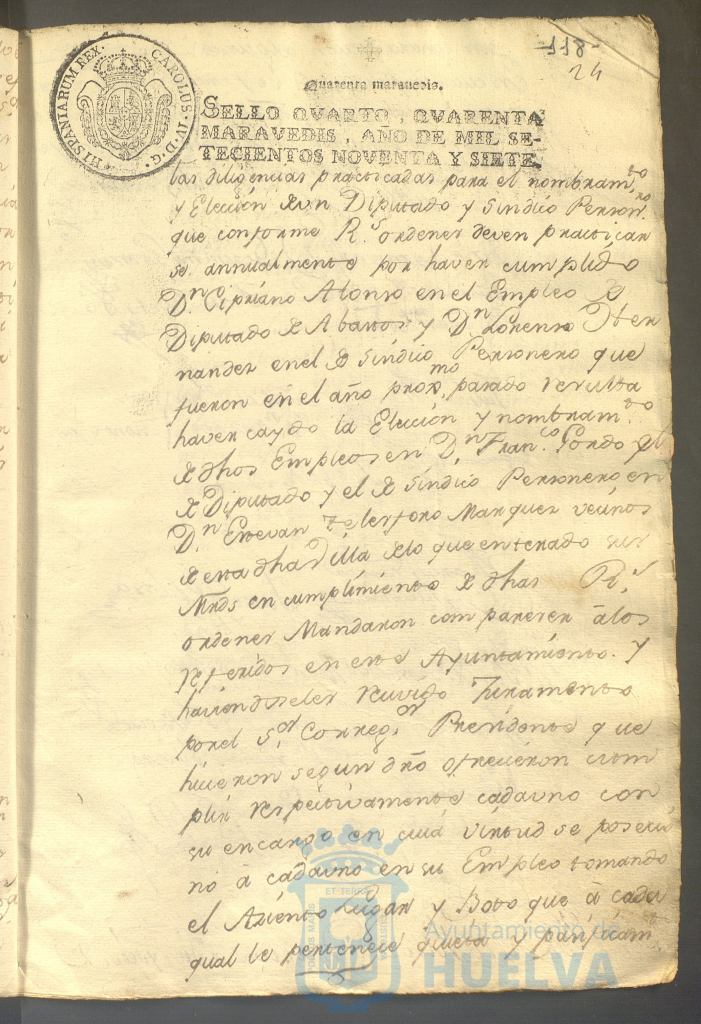 -118-
24
HISPANIARUM REX. CAROLUS·IV·D·G·
Quarenta maravedis.
SELLO QVARTO, QVARENTA
MARAVEDIS, AÑO DE MIL SE-
TECIENTOS NOVENTA Y SIETE.
las diligencias practicadas para el nombramto
y Elección de un Diputado y Sindico Personro
que conforme Rs ordenes deven practicar
se annualmente por haver cumplido
Dn Cipriano Alonso en el Empleo de
Diputado de Abastos y Dn Lorenzo Her
nandez en el de Sindico Personero que
fueron en el año proxmo pasado resulta
haver caydo la Elección y nombramto
de dhos Empleos en Dn Franco Gordo el
de Diputado y el de Sindico Personero en
Dn Estevan Telesforo Marquez vecinos
de esta dha Villa de lo que enterado sus
Mrds en cumplimiento de dhas Rs
ordenes Mandaron comparecer à los
referidos en este Ayuntamiento. Y
haviendoseles recivido Juramento
por el Sor Corregor Presidente que
hicieron segun dro ofrecieron cum
plir respectivamente cada uno con
su encargo en cuia virtud se poseci
nó à cada uno en su Empleo tomando
el Asiento lugar y Boto que à cada
qual le pertenece quieta y pasificamte
PORTUS MARIS ET TERRAE CUSTODIA
Ayuntamiento de
HUELVA